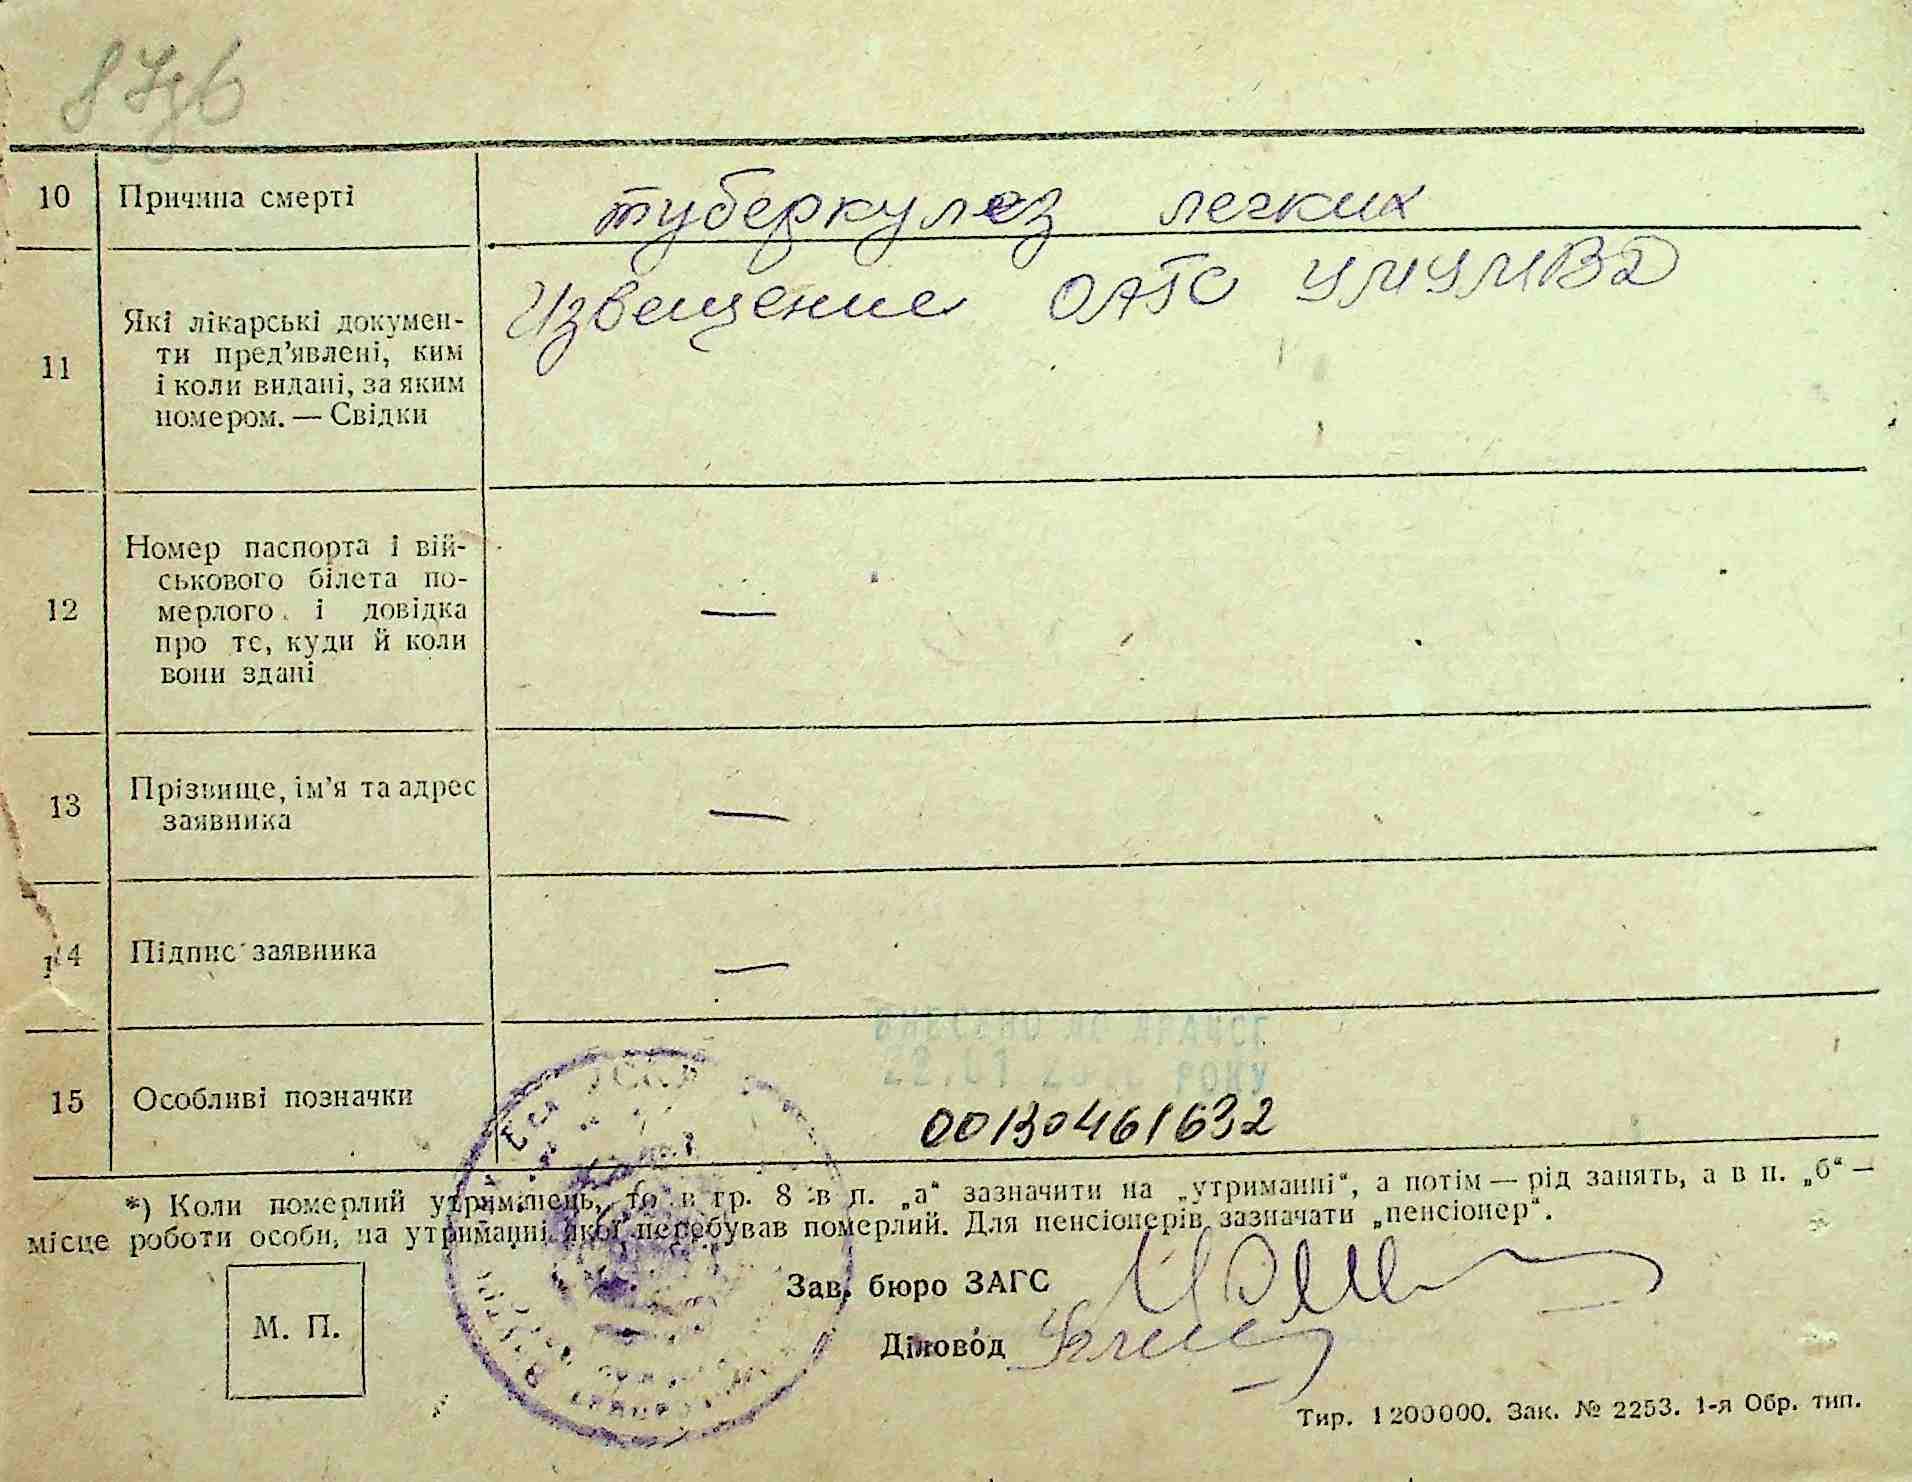 10 Причина смерті туберкулез легких
11 Які лікарські докумен-
ти пред’явлені, ким
і коли видані, за яким
номером. — Свідки
Извещение ОАГС УМУМВД
12 Номер паспорта і вій-
ськового білета по-
мерлого і довідка
про те, куди й коли
вони здані
—
13 Прізвище, ім’я та адрес
заявника
—
14 Підпис заявника —
ВНЕСЕНО ДО ДРАЦСГ
22.01 РОКУ
15 Особливі позначки 00130461632
*) Коли померлий утриманець, то в гр. 8 в п. „а“ зазначити на „утриманні“, а потім — рід занять, а в п. „б“ —
місце роботи особи, на утриманні якої перебував померлий. Для пенсіонерів зазначати „пенсіонер“.
Зав. бюро ЗАГС
М. П.
Діловод
Тир. 1200000. Зак. № 2253. 1-я Обр. тип.